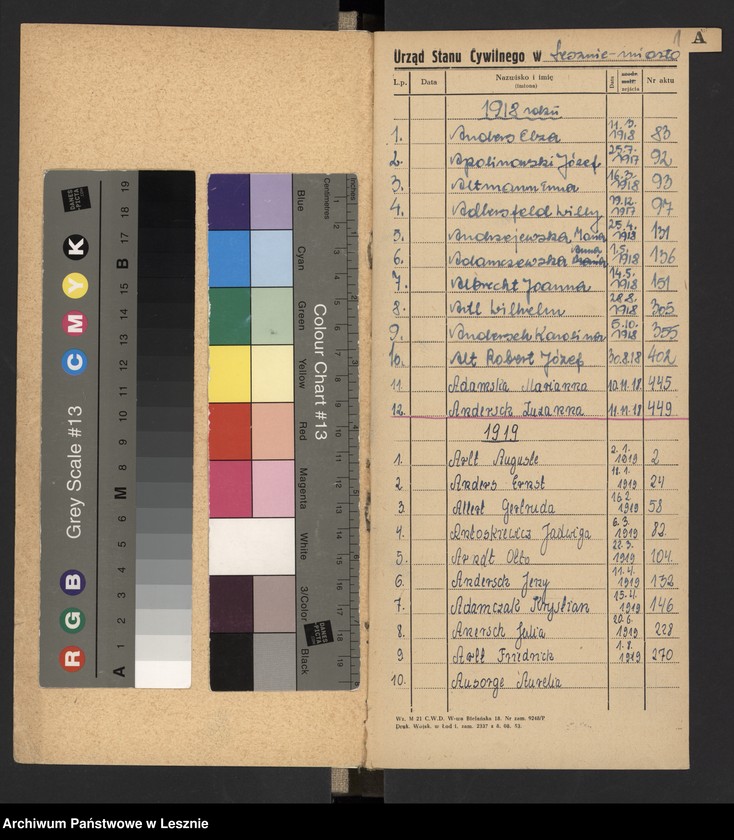 DANES PICTA
19
18
17
B
15
14
13
12
11
10
9
8
M
6
5
4
3
2
1
A
K Y M C
Grey Scale #13
B G R
Blue
Cyan
Green
Yellow
Red
Magenta
White
3/Color
Black
Centimetres
Inches
Colour Chart #13
DANES PICTA
1 A
Urząd Stanu Cywilnego w Lesznie-miasto
L.p. Data Nazwisko i imię (imiona) Data zejścia Nr aktu
1918 roku
1. Anders Elza 11.3. 1918 83
2. Apolinarski Józef 25.7. 1917 92
3. Altmann Irma 16.3. 1918 93
4. Adlersfeld Willy 19.12. 1917 97
5. Andrzejewska Maria 25.4. 1918 131
6. Adamczewska Anna 1.5. 1918 136
7. Albrecht Joanna 14.5. 1918 151
8. Artl Wilhelm 28.8. 1918 305
9. Andersch Karolina 5.10. 1918 355
10. Alt Robert Józef 30.8.18 402
11 Adamska Marianna 10.11.18 445
12. Andersch Zuzanna 11.11.18 449
1919
1. Arlt Auguste 2.1. 1919 2
2 Anders Ernst 11.1. 1919 24
3 Allert Gertruda 16.2 1919 58
4. Antoskiewicz Jadwiga 6.3. 1919 82
5. Arndt Otto 22.3. 1919 104
6. Andersch Jerzy 11.4. 1919 132
7. Adamczak Krystian 15.4. 1919 146
8. Anersch Julia 20.6. 1919 228
9 Arlt Friedrich 1.8. 1919 270
10. Ansorge Aurelia
Wz. M 21 C.W.D. W-wa Bielańska 18. Nr zam. 9248/P
Druk. Wojsk. w Łodzi. zam. 2327 z 8. 08. 52.
Archiwum Państwowe w Lesznie